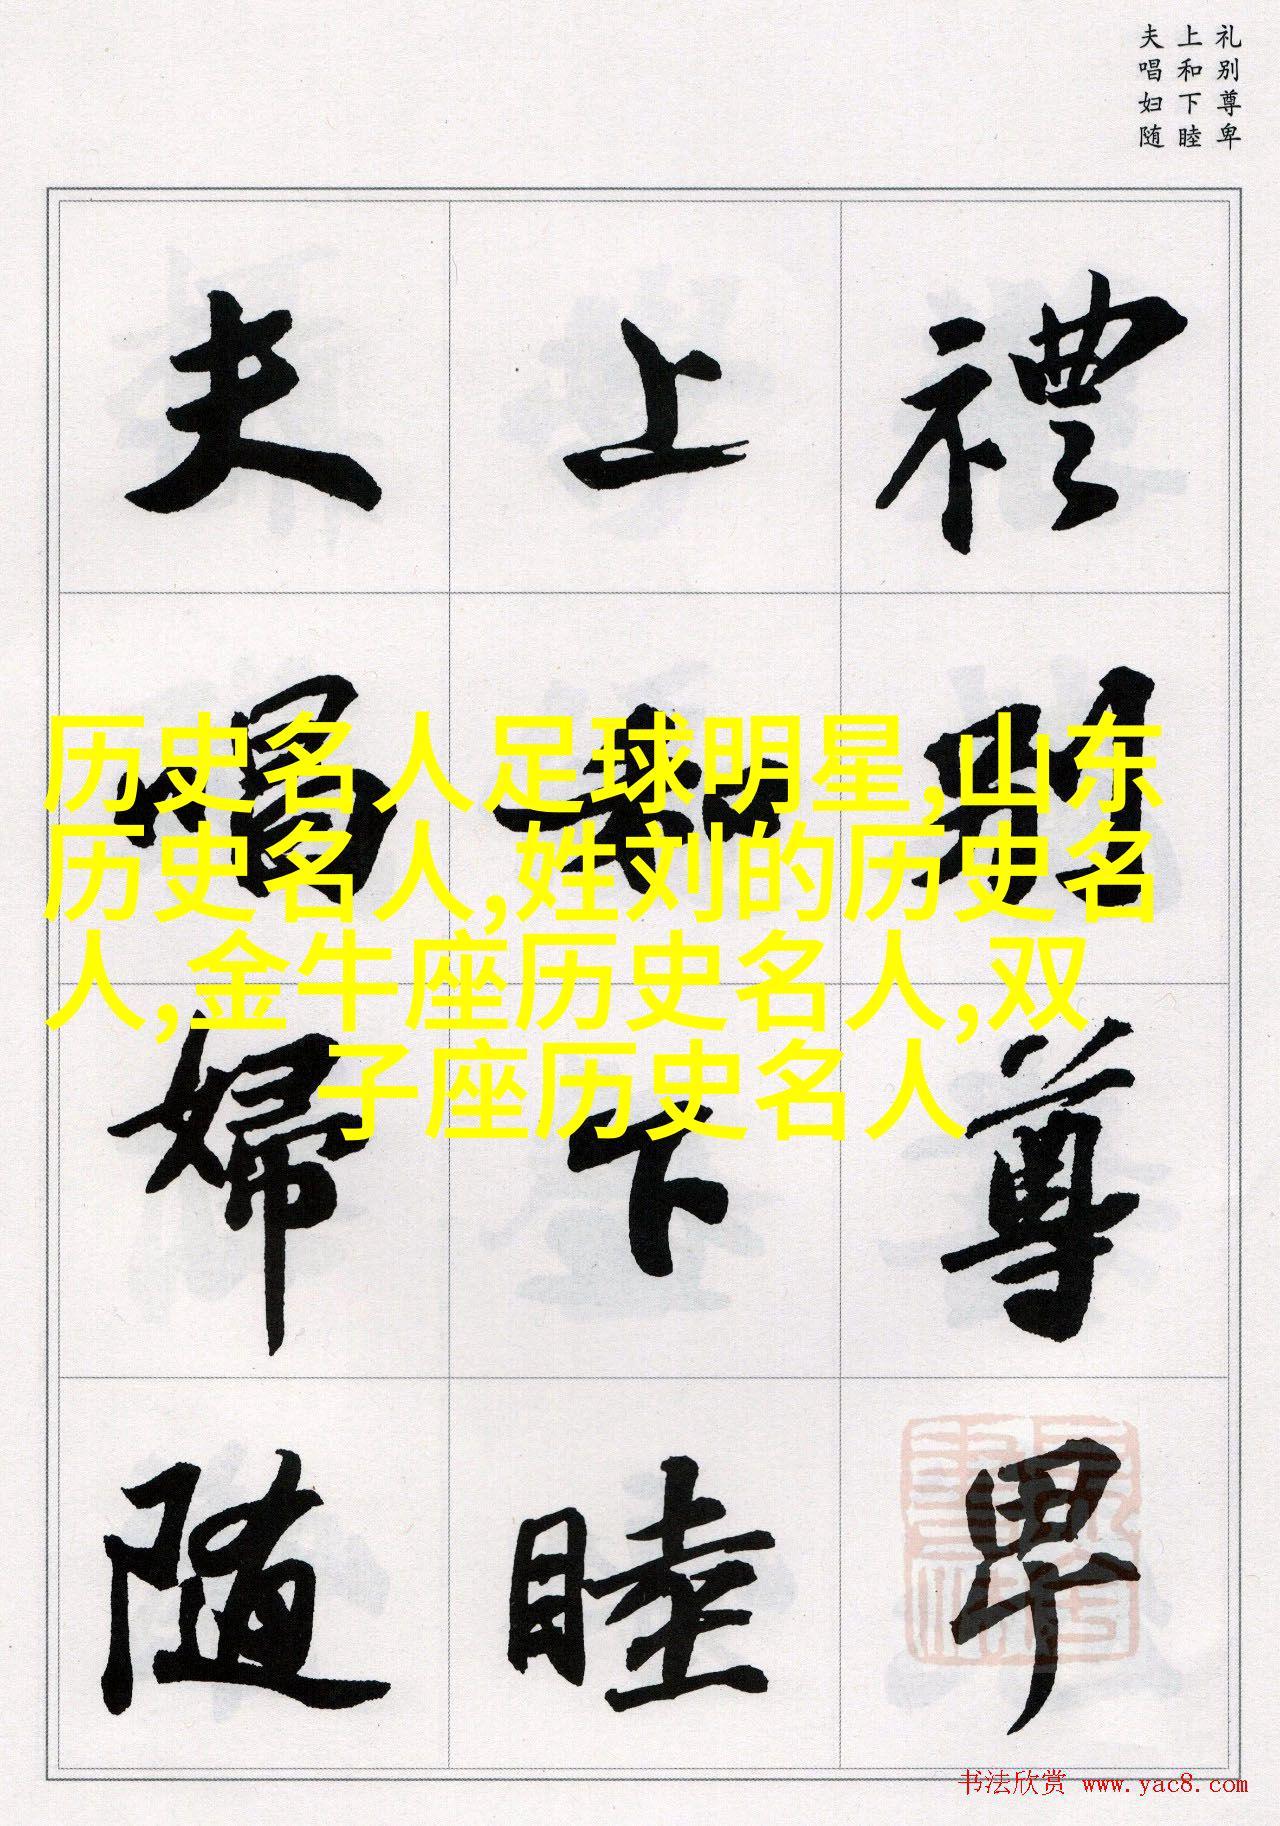 礼别尊卑
上和下睦
夫唱妇随
禮別尊卑
上和下睦
夫唱婦随
历史名人足球明星,山东
历史名人,姓刘的历史名
人,金牛座历史名人,双
子座历史名人
书法欣赏 www.yac8.com